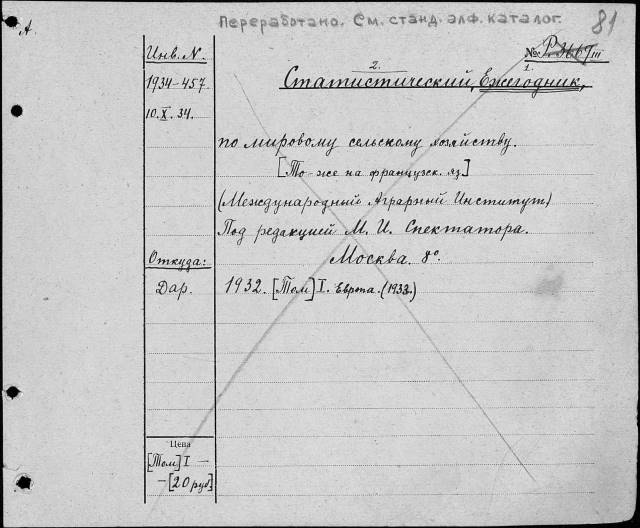 А
Переработано. См. станд. алф. каталог.
81
Инв. N.
№ Р. III
1934-457.
2. 1.
Статистический, Ежегодник,
10.X.34.
по мировому сельскому хозяйству.
[То-же на французск. яз]
(Международный Аграрный Институт)
Под редакцией М. И. Спектатора.
Откуда:
Москва. 8º.
Дар.
1932. [Том] I. Европа. (1933.)
Цена
[Том] I —
— [20 руб]